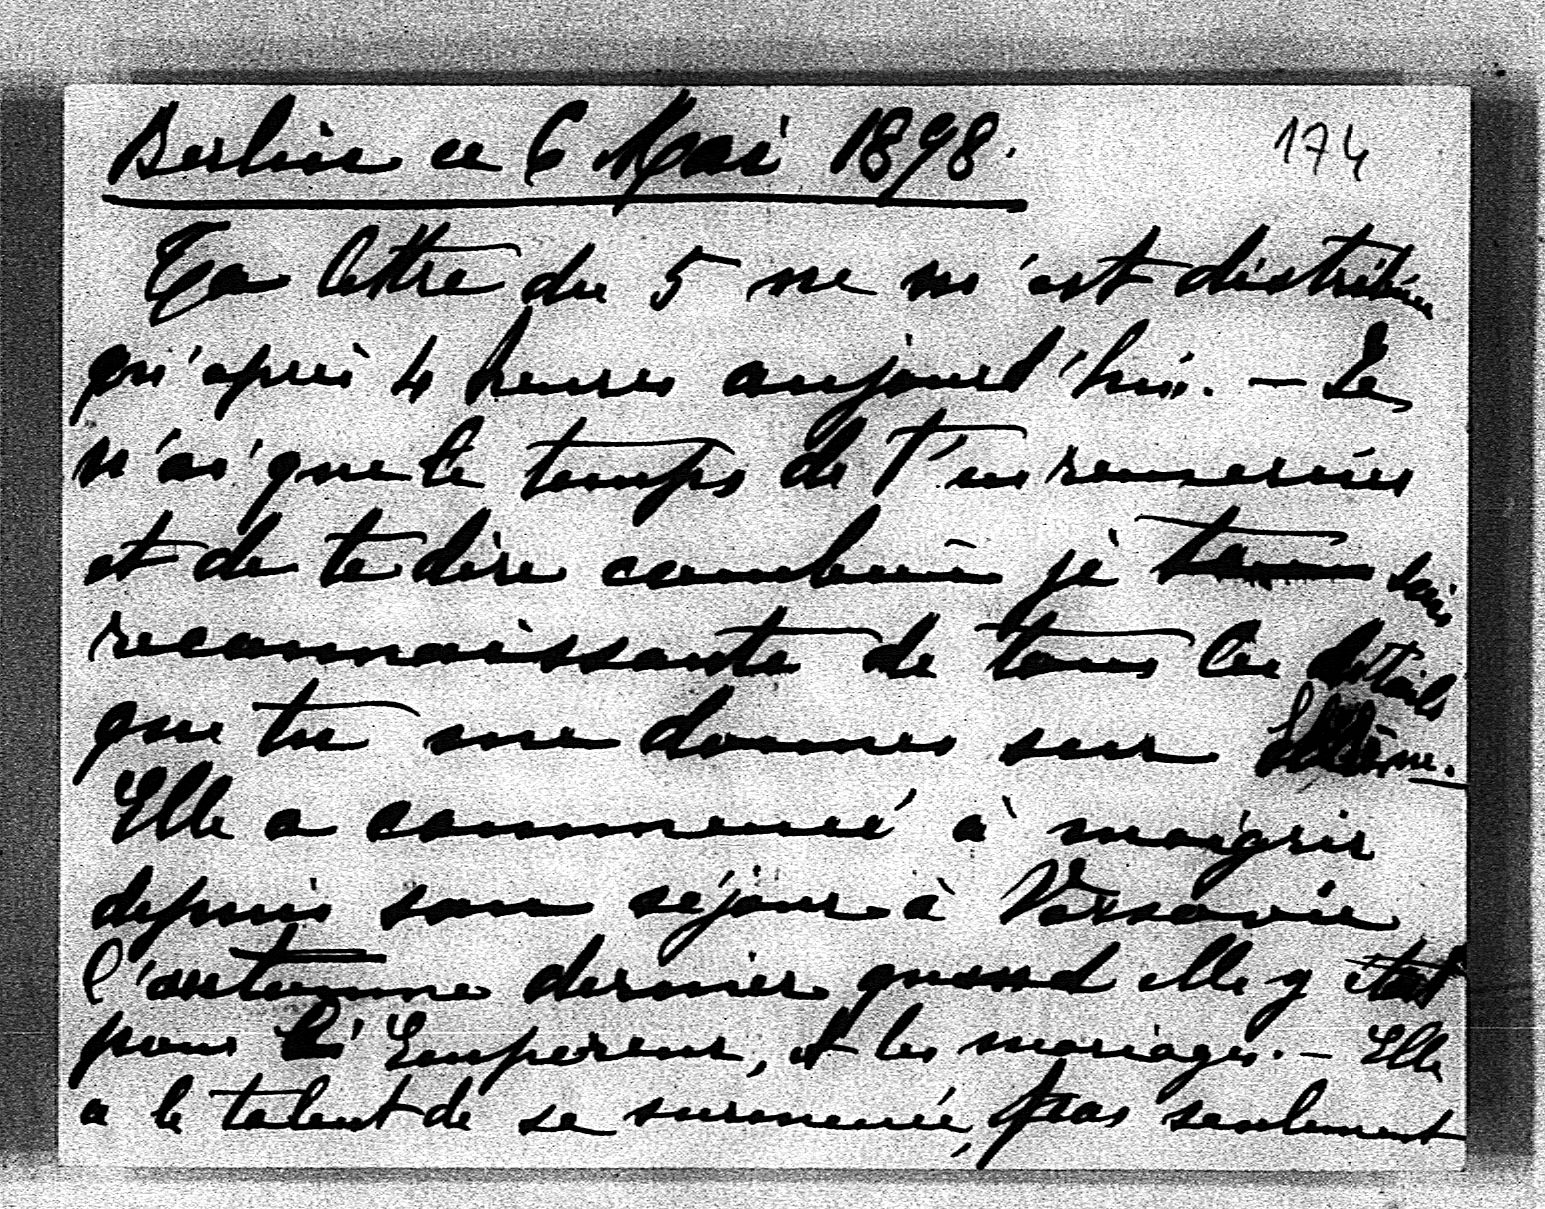 Berlin ce 6 Mai 1898.
174
Ta lettre du 5 ne m'est distribuée
qu'après 4 heures aujourd'hui. — Je
n'ai que le temps de t'en remercier
et de te dire combien je suis
reconnaissante de tous les détails
que tu me donnes sur
Elle a commencé à maigrir
depuis son séjour à Varsovie
l'automne dernier quand elle y était
pour l'Empereur, et les mariages. — Elle
a le talent de se surmener, pas seulement